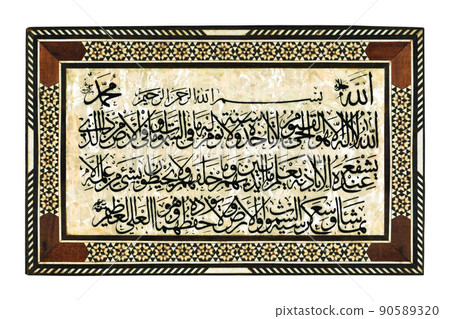 الله بسم الله الرحمن الرحيم محمد
الله لا اله الا هو الحي القيوم لا تاخذه سنة ولا نوم له ما في السموات وما في الارض من ذا الذي
يشفع عنده الا باذنه يعلم ما بين ايديهم وما خلفهم ولا يحيطون بشيء من علمه الا
بما شاء وسع كرسيه السموات والارض ولا يؤده حفظهما وهو العلي العظيم
90589320